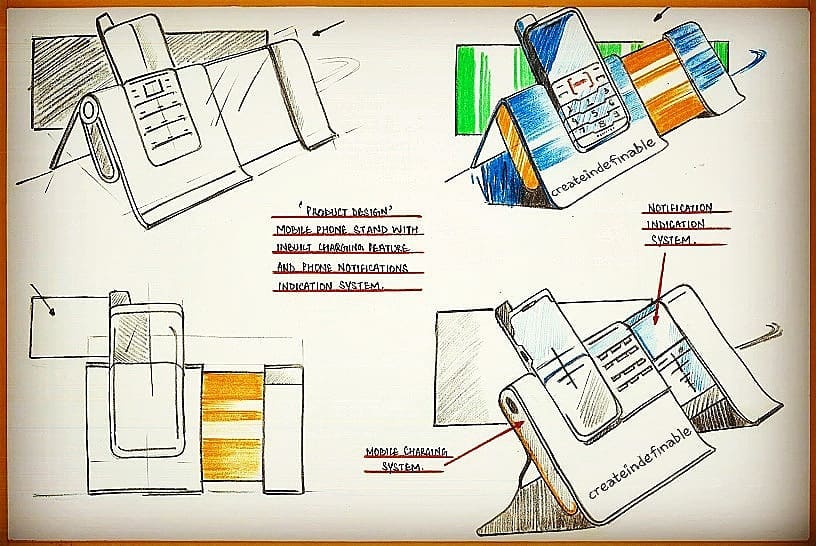 createindefinable
'PRODUCT DESIGN'
MOBILE PHONE STAND WITH
INBUILT CHARGING FEATURE
AND PHONE NOTIFICATIONS
INDICATION SYSTEM.
NOTIFICATION
INDICATION
SYSTEM.
MOBILE CHARGING
SYSTEM.
createindefinable